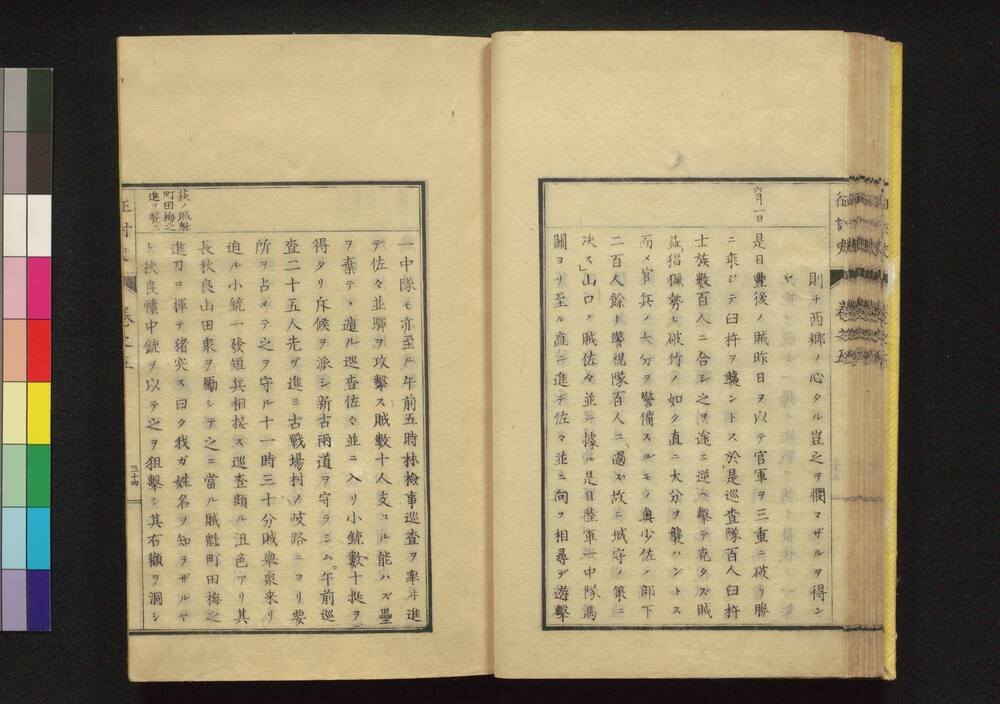 則チ西郷ノ心タル豈之ヲ憫マザルヲ得ン
ヤ
六月一日
是日豊後ノ賊昨日ヲ以テ官軍ヲ三重ニ破リ勝
ニ乗ジテ臼杵ヲ襲ントス於是巡査隊百人臼杵
士族数百人ニ合シ之ヲ途ニ逆ヘ撃テ克タズ賊
益猖獗勢ヒ破竹ノ如ク直ニ大分ヲ襲ハントス
而メ官兵ノ大分ヲ警備スルモノ奥少佐ノ部下
二百人餘ト警視隊百人ニ過ズ故ニ城守ノ策ニ
決ス山口ノ賊佐々並ニ據ル是日陸軍一中隊馬
關ヨリ至ル直ニ進デ佐々並ニ向ヲ相尋デ遊撃
征討史
巻之五
一中隊モ亦至ル午前五時林檢事巡査ヲ率ヰ進
デ佐々並驛ヲ攻撃ス賊數十人支ユル能ハズ壘
ヲ棄テヽ遁ル巡査佐々並ニ入リ小銃數十挺ヲ
得タリ斥候ヲ派シ新古兩道ヲ守ラシム午前巡
査二十五人先ヅ進ミ古戰場村ノ岐路ニヨリ要
所ヲ占メテ之ヲ守ル十一時三十分賊衆衆来リ
迫ル小銃一發短兵相接ス巡査頗ル沮色アリ其
長秋良山田衆ヲ勵シテ之ニ當ル賊魁町田梅之
進刀ヲ揮テ猪突ス曰ク我ガ姓名ヲ知ヲザルヤ
ト秋良懐中銃ヲ以テ之ヲ狙撃シ其右顴ヲ洞シ
萩ノ賊魁
町田梅之
進ヲ撃
三十四